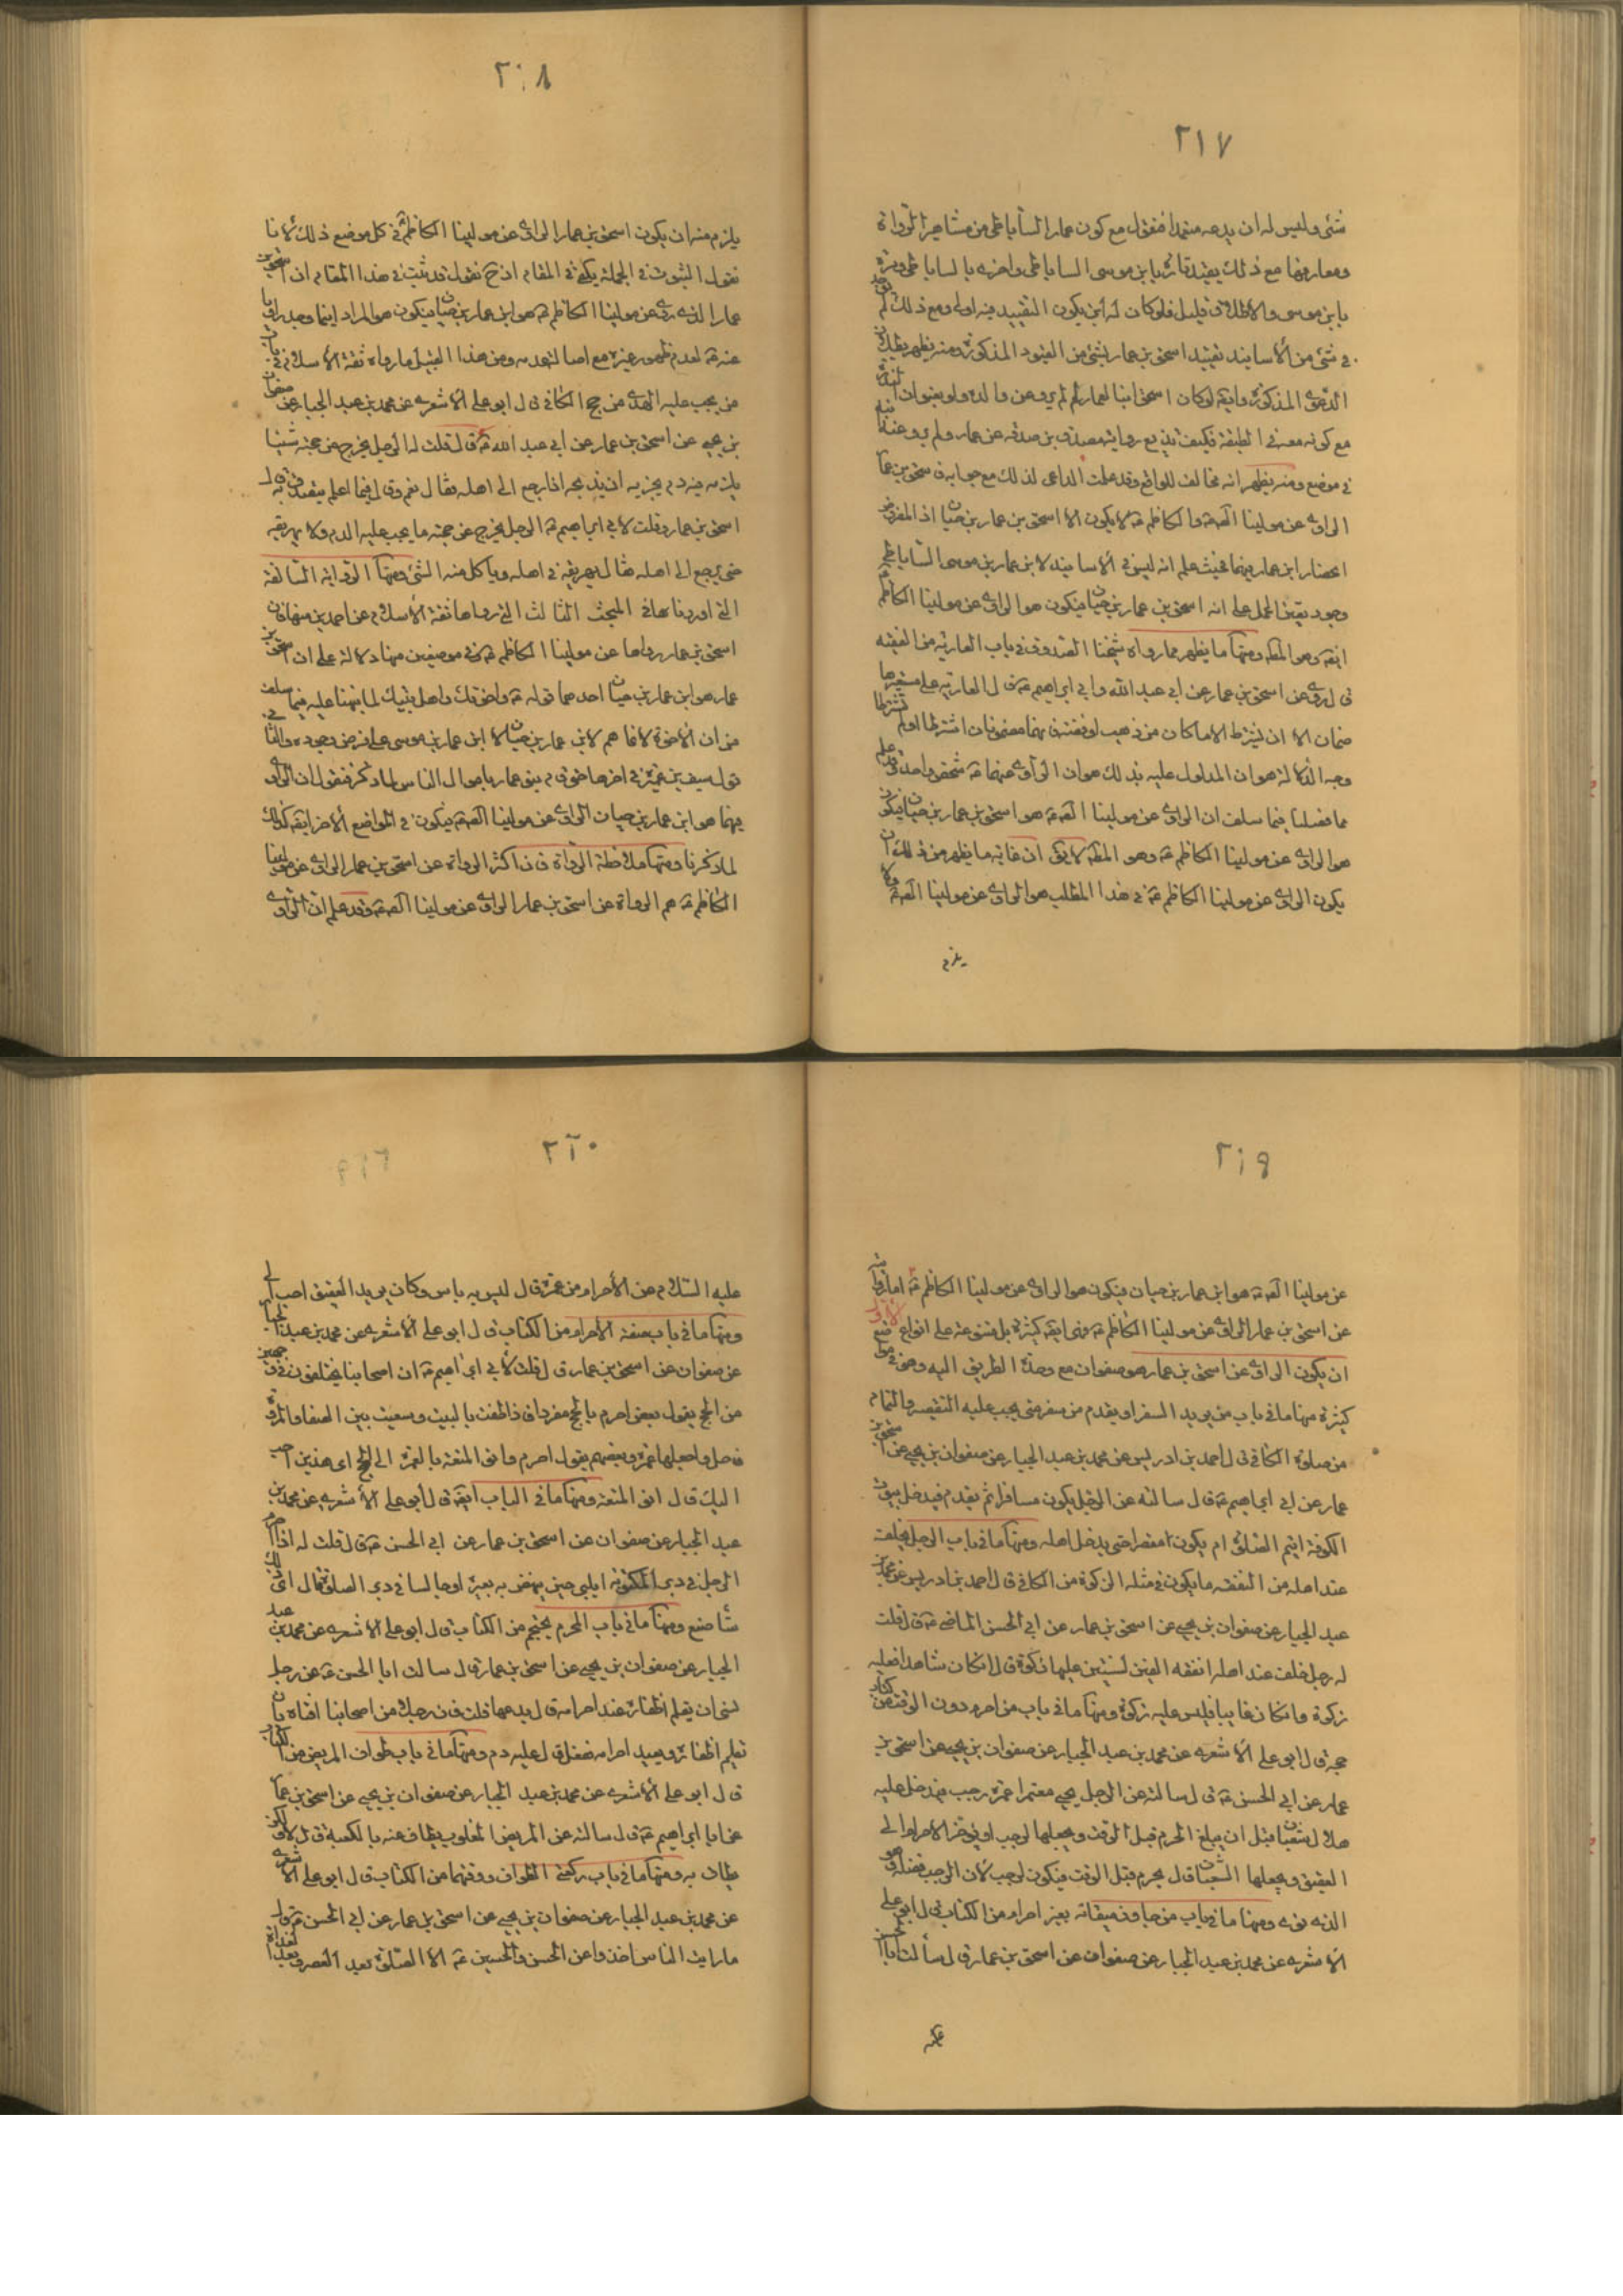 ٢١٧
شئ وليس له ان يدعه متعمدا فنقول مع كون عمار الساباطى من مشاهير الرواة
ومعاريفها مع ذلك يقيد تارة بابن موسى الساباطى واخرى بالساباطى ومرة
بابن موسى والاطلاق قليل فلو كان له ابن يكون التقييد فيه اولى ومع ذلك لم يوجد
فى شئ من الأسانيد تقييد اسحق بن عمار بشئ من القيود المذكورة ومنه يظهر بطلان
الدعوى المذكورة وايضا لو كان اسحق ابنا لعمار لم لم يرو عن والده ولو بعنوان الندرة
مع كونه معه فى الطبقة فكيف يذيع رواية مصدق بن صدقة عن عمار ولم يرو عنه ابنه
فى موضع ومنه يظهر انه مخالف للواقع وقد علمت الداعى لذلك مع جوابه فاسحق بن عمار
الراوى عن مولينا الصادق والكاظم ع لا يكون الا اسحق بن عمار بن حيان اذ المفروض
انحصار ابن عمار فيهما فحيث علم انه ليس فى الأسانيد لابن عمار بن موسى الساباطى
وجود تعين الحمل على انه اسحق بن عمار بن حيان فيكون هو الراوى عن مولينا الكاظم
ايضا وهو المط ومنها ما يظهر مما رواه شيخنا الصدوق فى باب العارية من الفقيه
قال روى عن اسحق بن عمار عن ابى عبد الله وابى ابراهيم ع قال العارية على مستعيرها
ضمان الا ان يشترط الا ما كان من ذهب او فضة فانهما مضمونان اشترطا او لم يشترطا
وجه الدلالة هو ان المدلول عليه بذلك هو ان الراوى عنهما ع شخص واحد وقد علم
مما فصلنا فيما سلف ان الراوى عن مولينا الصادق ع هو اسحق بن عمار بن حيان فيكون
هو الراوى عن مولينا الكاظم ع وهو المط لا يق ان غاية ما يظهر من ذلك ان
يكون الراوى عن مولينا الكاظم ع فى هذا المطلب هو الراوى عن مولينا الصادق ع ولا
يلزم
٢١٨
يلزم منه ان يكون اسحق بن عمار الراوى عن مولينا الكاظم ع فى كل موضع ذلك لانا
نقول الثبوت فى الجملة يكفى فى المقام اذ ح نقول قد ثبت فى هذا المقام ان اسحق بن
عمار الذى روى عن مولينا الكاظم ع هو ابن عمار بن حيان فيكون هو المراد اينما وجد راويا
عنه ع لعدم ظهور غيره مع اصالة عدمه ومن هذا القبيل ما رواه ثقة الأسلام فى باب
من يجب عليه الهدى من حج الكافى قال ابو على الأشعرى عن محمد بن عبد الجبار عن صفوان
بن يحيى عن اسحق بن عمار عن ابى عبد الله ع قال قلت له الرجل يخرج من حجته شيئا
يلزمه منه دم يجزيه ان يذبحه اذا رجع الى اهله فقال نعم وقال فيما اعلم يتصدق به قال
اسحق بن عمار وقلت لابى ابراهيم ع الرجل يخرج عن حجته ما يجب عليه الدم ولا يهريقه
حتى يرجع الى اهله فقال يهريقه فى اهله وياكل منه الشئ ومنها الرواية السالفة
التى اوردناها فى المبحث الثالث التى رواها ثقة الأسلام عن احمد بن مهران
اسحق بن عمار رواها عن مولينا الكاظم ع فى موضعين منها دلالة على ان اسحق بن
عمار هو ابن عمار بن حيان احدهما قوله ع واخوتك واهل بيتك لما نبهنا عليه فيما سلف
من ان الأخوة لانما هم لابن عمار بن حيان لا ابن عمار بن موسى على فرض وجوده والثانى
قول سيف بن عميرة فى اخرها حتى قام بنو عمار باموال الناس لما ذكر فنقول ان الراوى
فيهما هو ابن عمار بن حيان الراوى عن مولينا الصادق ع فيكون فى المواضع الأخر ايضا كذلك
لما ذكرنا ومنها ملاحظة الرواة فان اكثر الرواة عن اسحق بن عمار الراوى عن مولينا
الكاظم ع هم الرواة عن اسحق بن عمار الراوى عن مولينا الصادق ع وقد علم ان الراوى
٢١٩
عن مولينا الصادق ع هو ابن عمار بن حيان فيكون هو الراوى عن مولينا الكاظم ع اما رواية
عن اسحق بن عمار الراوى عن مولينا الكاظم ع فهى ايضا كثيرة بل متنوعة على انواع
ان يكون الراوى عن اسحق بن عمار هو صفوان مع وحدة الطريق اليه وهو فى مواضع
كثيرة منها ما فى باب من يريد السفر او يقدم من سفر متى يجب عليه التقصير والتمام
من صلوة الكافى قال احمد بن ادريس عن محمد بن عبد الجبار عن صفوان بن يحيى عن اسحق بن
عمار عن ابى ابراهيم ع قال سالته عن الرجل يكون مسافرا ثم يقدم فيدخل بيوت
الكوفة ايتم الصلوة ام يكون مقصرا حتى يدخل اهله ومنها ما فى باب الرجل يخلف
عند اهله من النفقة ما يكون فى مثله الزكوة من الكافى قال احمد بن ادريس عن محمد بن
عبد الجبار عن صفوان بن يحيى عن اسحق بن عمار عن ابى الحسن الماضى ع قال قلت
له رجل خلف عند اهله نفقة الفين لسنتين عليها زكوة قال ان كان شاهدا فعليه
زكوة وان كان غايبا فليس عليه زكوة ومنها ما فى باب من احرم دون الوقت من كتاب
حجه قال ابو على الأشعرى عن محمد بن عبد الجبار عن صفوان بن يحيى عن اسحق بن
عمار عن ابى الحسن ع قال سالته عن الرجل يجيى معتمرا عمرة رجب فيدخل عليه
هلال شعبان قبل ان يبلغ الحرم قبل الوقت ويجعلها لرجب او يؤخر الاحرام الى
العقيق ويجعلها لشعبان قال يحرم قبل الوقت فيكون لرجب لأن لرجب فضله وهو
الذى نوى ومنها ما فى باب من جاوز ميقاته بغير احرام من الكتاب قال ابو على
الأشعرى عن محمد بن عبد الجبار عن صفوان عن اسحق بن عمار قال سألت ابا الحسن
عليه
٢٢٠
عليه السلام عن الأحرام من غمرة قال ليس به باس وكان بريد العقيق احب الى
ومنها ما فى باب صفة الأحرام من الكتاب قال ابو على الأشعرى عن محمد بن عبد الجبار
عن صفوان عن اسحق بن عمار قال قلت لأبى ابراهيم ع ان اصحابنا يختلفون فى وجهين
من الحج يقول بعض احرم بالحج مفردا فاذا طفت بالبيت وسعيت بين الصفا والمروة
فاحل واجعلها عمرة وبعضهم يقول احرم وانو المتعة بالعمرة الى الحج اى هذين احب
اليك قال انو المتعة ومنها ما فى الباب ايضا قال ابو على الأشعرى عن محمد بن
عبد الجبار عن صفوان عن اسحق بن عمار عن ابى الحسن ع قال قلت له اذا احرم
الرجل فى دبر المكتوبة ايلبى حين ينهض به بعيره او جالسا فى دبر الصلوة قال اى ذلك
شاء صنع ومنها ما فى باب المحرم يحتجم من الكتاب قال ابو على الأشعرى عن محمد بن عبد
الجبار عن صفوان بن يحيى عن اسحق بن عمار قال سالت ابا الحسن ع عن رجل
نسى ان يقلم اظفاره عند احرامه قال يدعها قلت فان رجلا من اصحابنا افتاه بان
يقلم اظفاره ويعيد احرامه ففعل قال عليه دم ومنها ما فى باب طواف المريض من الكتاب
قال ابو على الأشعرى عن محمد بن عبد الجبار عن صفوان بن يحيى عن اسحق بن عمار
عن ابا ابراهيم ع قال سالته عن المريض المغلوب يطاف عنه بالكعبة قال لا ولكن
يطاف به ومنها ما فى باب ركعتى الطواف ووقتهما من الكتاب قال ابو على الأشعرى
عن محمد بن عبد الجبار عن صفوان بن يحيى عن اسحق بن عمار عن ابى الحسن ع قال
ما رايت الناس اخذوا عن الحسن والحسين ع الا الصلوة بعد العصر وبعد الغداة